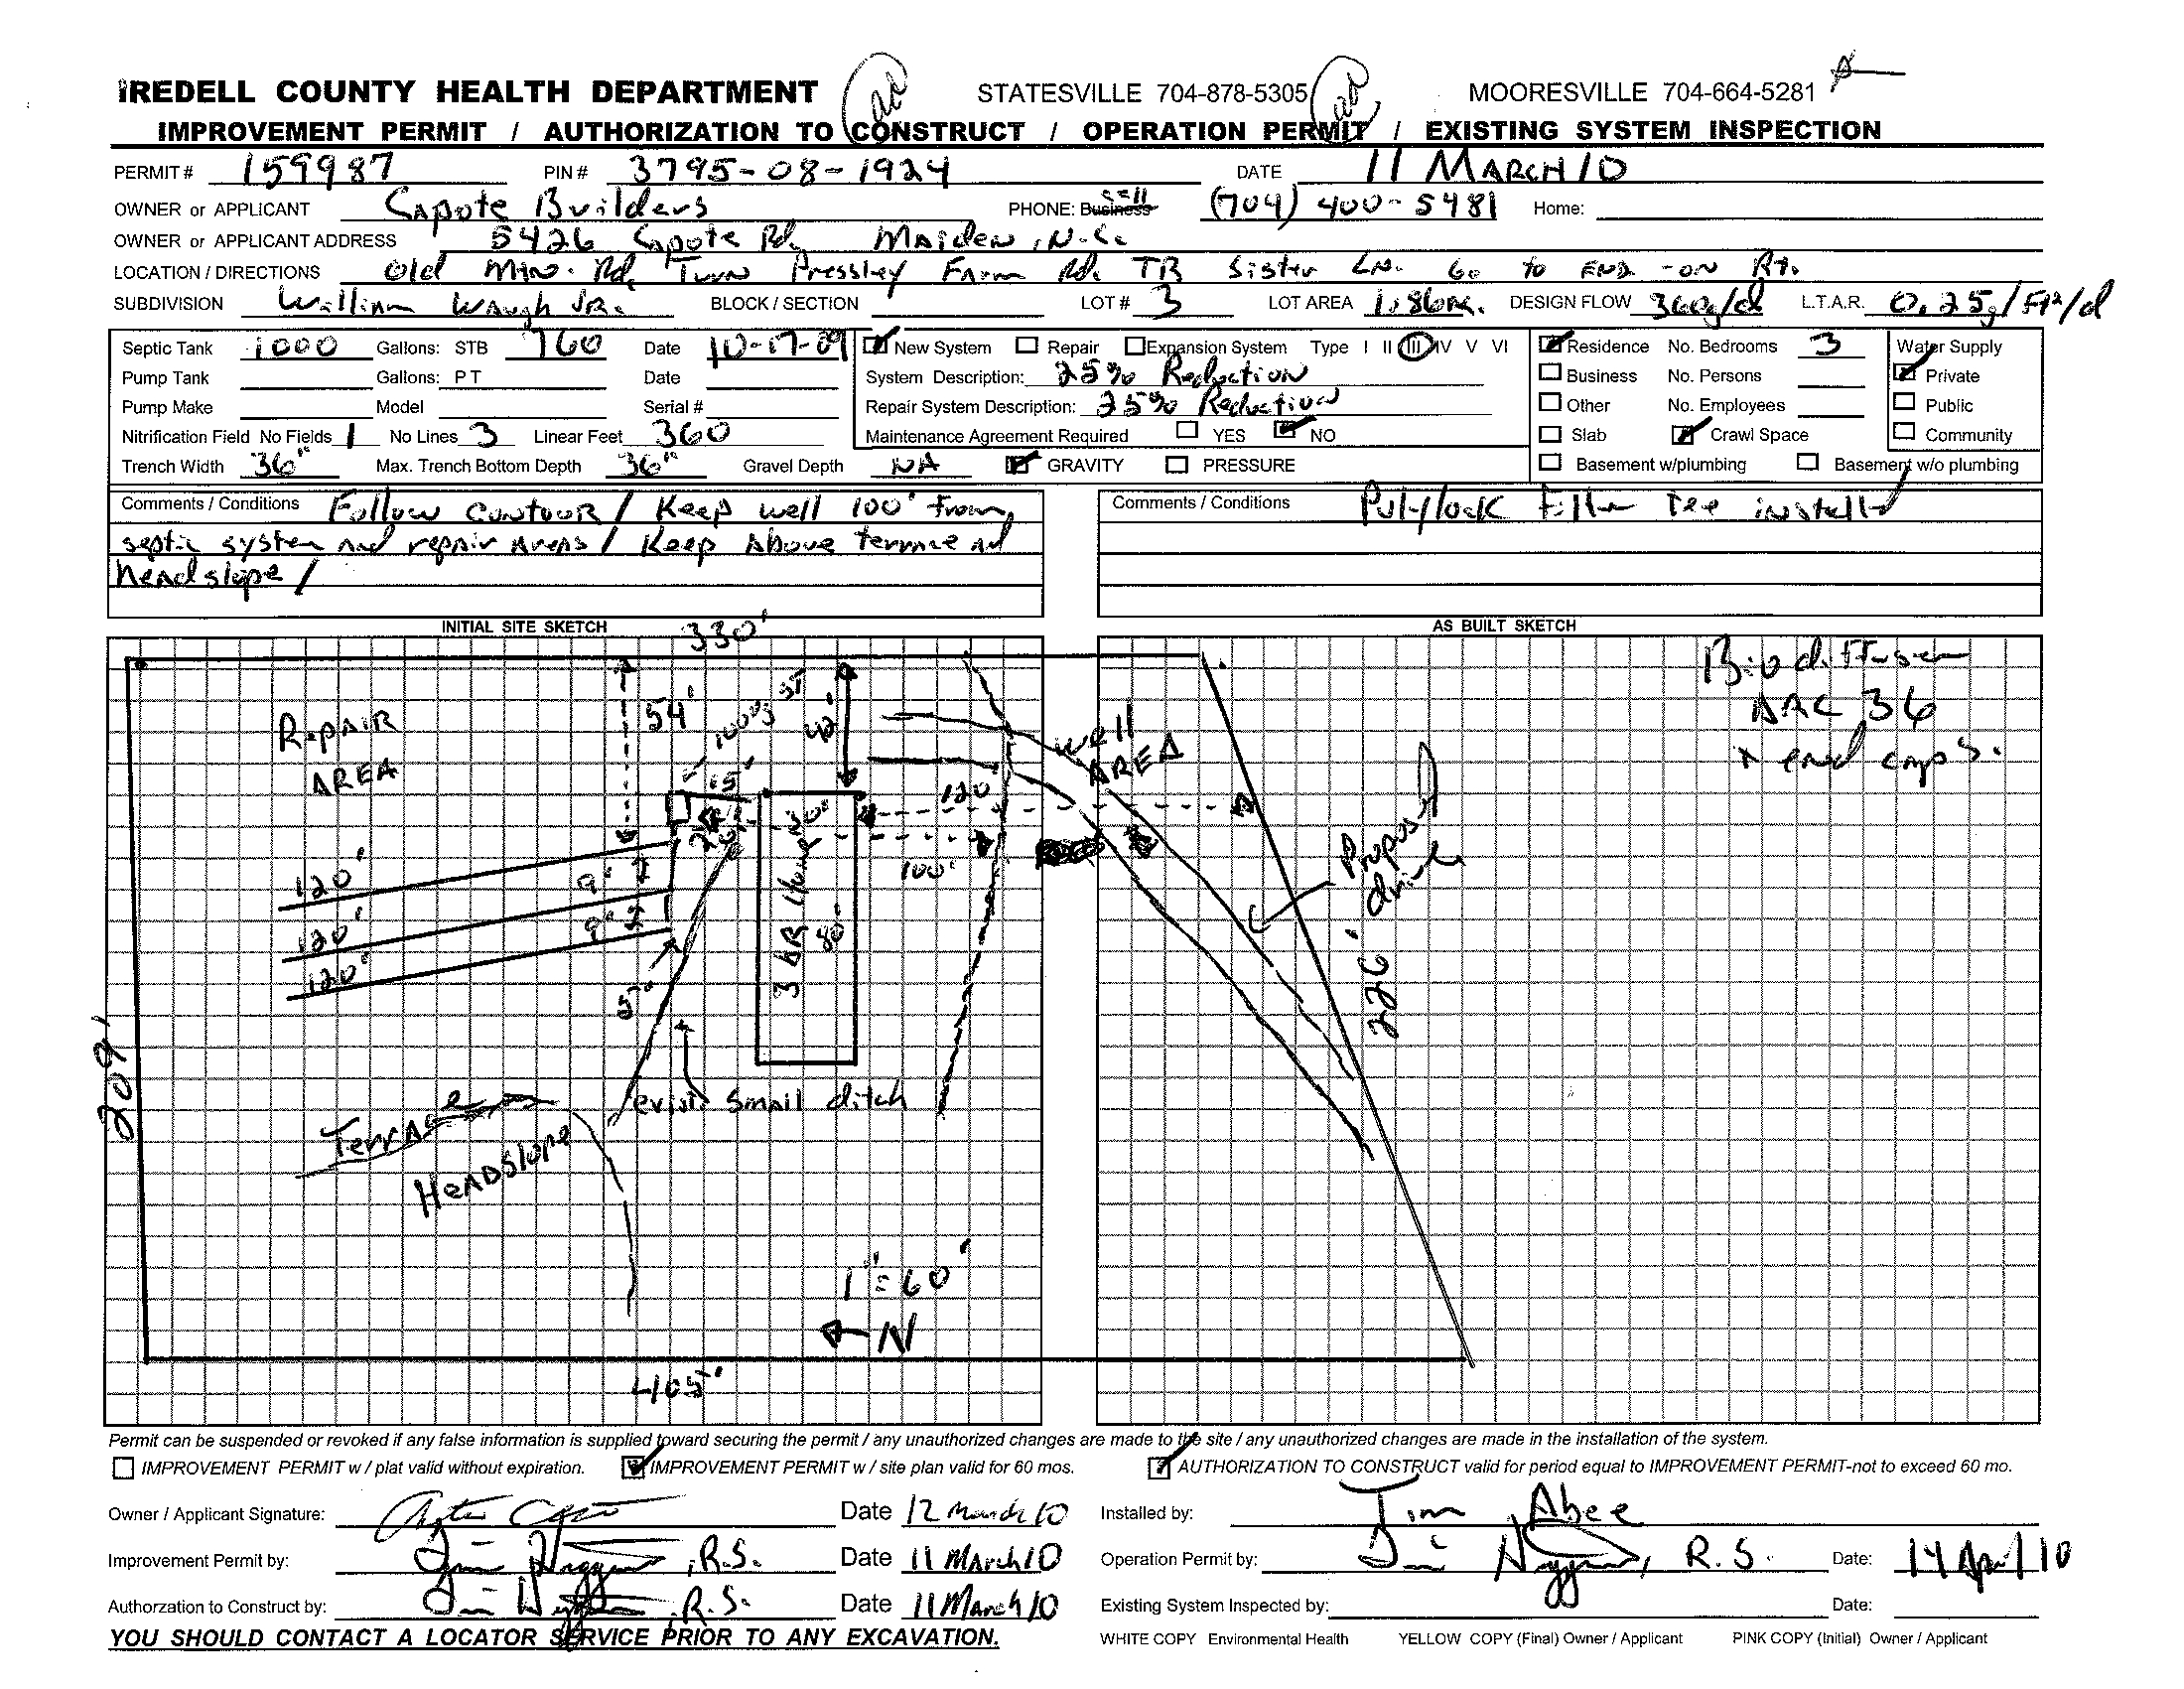 IREDELL COUNTY HEALTH DEPARTMENT STATESVILLE 704-878-5305 MOORESVILLE 704-664-5281
IMPROVEMENT PERMIT / AUTHORIZATION TO CONSTRUCT / OPERATION PERMIT / EXISTING SYSTEM INSPECTION
PERMIT # 159987 PIN # 3795-08-1924 DATE 11 MARCH 10
OWNER or APPLICANT Capote Builders PHONE: Business Cell (704) 400-5481 Home:
OWNER or APPLICANT ADDRESS 5426 Capote Rd. Maiden, N.C.
LOCATION / DIRECTIONS Old Mtn. Rd, Turn Pressley Farm Rd. TR Sister Ln. Go to END - ON Rt.
SUBDIVISION William Waugh Jr. BLOCK / SECTION LOT # 3 LOT AREA 1.86ac. DESIGN FLOW 360g/d L.T.A.R. 0.25g/Ft²/d
Septic Tank 1000 Gallons: STB 760 Date 10-17-09 New System Repair Expansion System Type I II III IV V VI Residence No. Bedrooms 3 Water Supply
Pump Tank Gallons: PT Date System Description: 25% Reduction Business No. Persons Private
Pump Make Model Serial # Repair System Description: 25% Reduction Other No. Employees Public
Nitrification Field No Fields 1 No Lines 3 Linear Feet 360 Maintenance Agreement Required YES NO Slab Crawl Space Community
Trench Width 36" Max. Trench Bottom Depth 36" Gravel Depth NA GRAVITY PRESSURE Basement w/plumbing Basement w/o plumbing
Comments / Conditions Follow contour / Keep well 100' from
septic system and repair areas / Keep above terrace and
headslope /
Comments / Conditions Polylock Filter Tee installed
INITIAL SITE SKETCH 330' AS BUILT SKETCH
Biodiffuser
ARC 36
x end caps.
REPAIR
AREA
54'
1000g ST
42'
15'
20'
well
AREA
120
100'
30'
3 BR Home
80'
Proposed
drive
226'
120'
120'
120'
9'
9'
5'
209'
exist. small ditch
Terrace
HEADSLOPE
1" = 60'
N
405'
Permit can be suspended or revoked if any false information is supplied toward securing the permit / any unauthorized changes are made to the site / any unauthorized changes are made in the installation of the system.
IMPROVEMENT PERMIT w / plat valid without expiration. IMPROVEMENT PERMIT w / site plan valid for 60 mos. AUTHORIZATION TO CONSTRUCT valid for period equal to IMPROVEMENT PERMIT-not to exceed 60 mo.
Owner / Applicant Signature: Date 12 March 10 Installed by: Tim Abee
Improvement Permit by: , R.S. Date 11 March 10 Operation Permit by: , R.S. Date: 14 April 10
Authorzation to Construct by: , R.S. Date 11 March 10 Existing System Inspected by: Date:
YOU SHOULD CONTACT A LOCATOR SERVICE PRIOR TO ANY EXCAVATION. WHITE COPY Environmental Health YELLOW COPY (Final) Owner / Applicant PINK COPY (Initial) Owner / Applicant